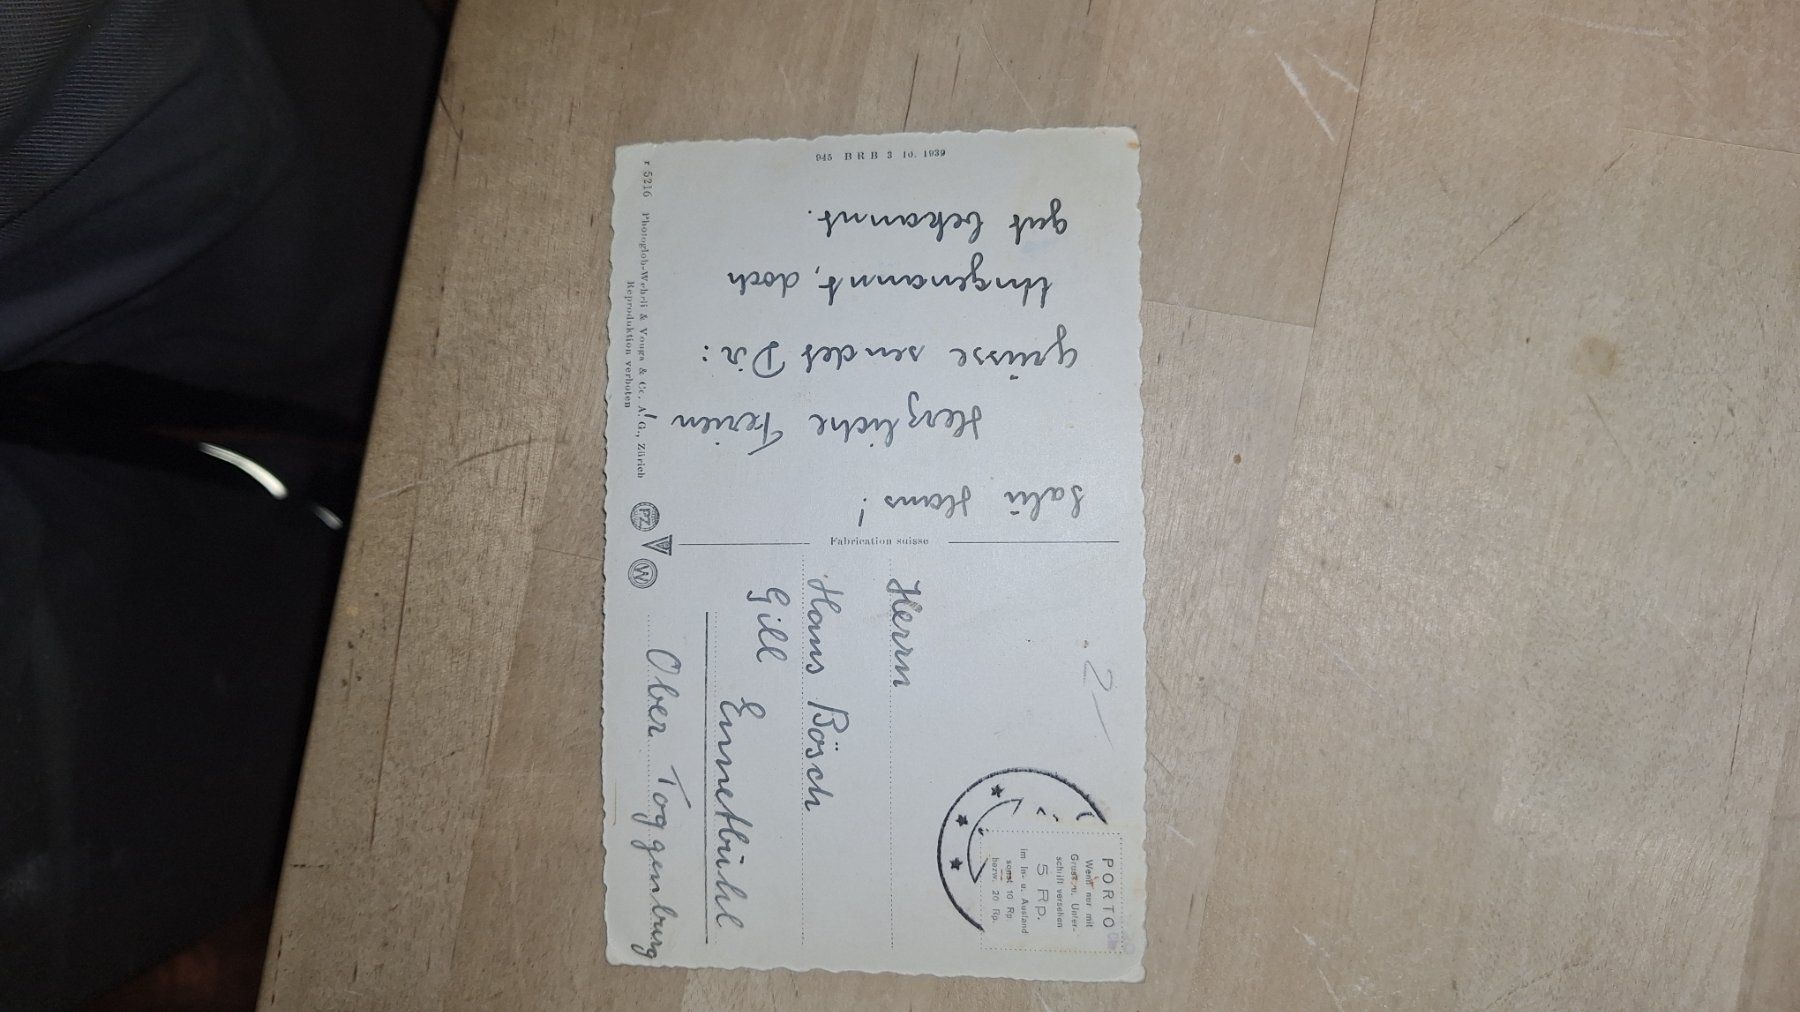 945 BRB 3 10. 1939
Salü Hans!
Herzliche Ferien
grüsse sendet Dir:
Ungenannt, doch
gut bekannt.
r 5216 Photoglob-Wehrli & Vouga & Co. A. G., Zürich
Reproduktion verboten
PZ
W
Fabrication suisse
PORTO
Wenn nur mit
Gruss u. Unter-
schrift versehen
5 Rp.
im In- u. Ausland
sonst 10 Rp
bezw. 20 Rp.
2
Herrn
Hans Bösch
Gill
Ennetbühl
Ober Toggenburg